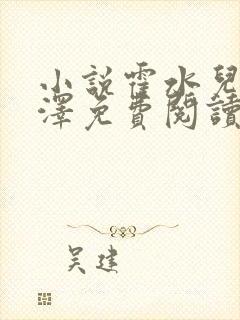 小說霍水兒
澤免費閱讀
吴建